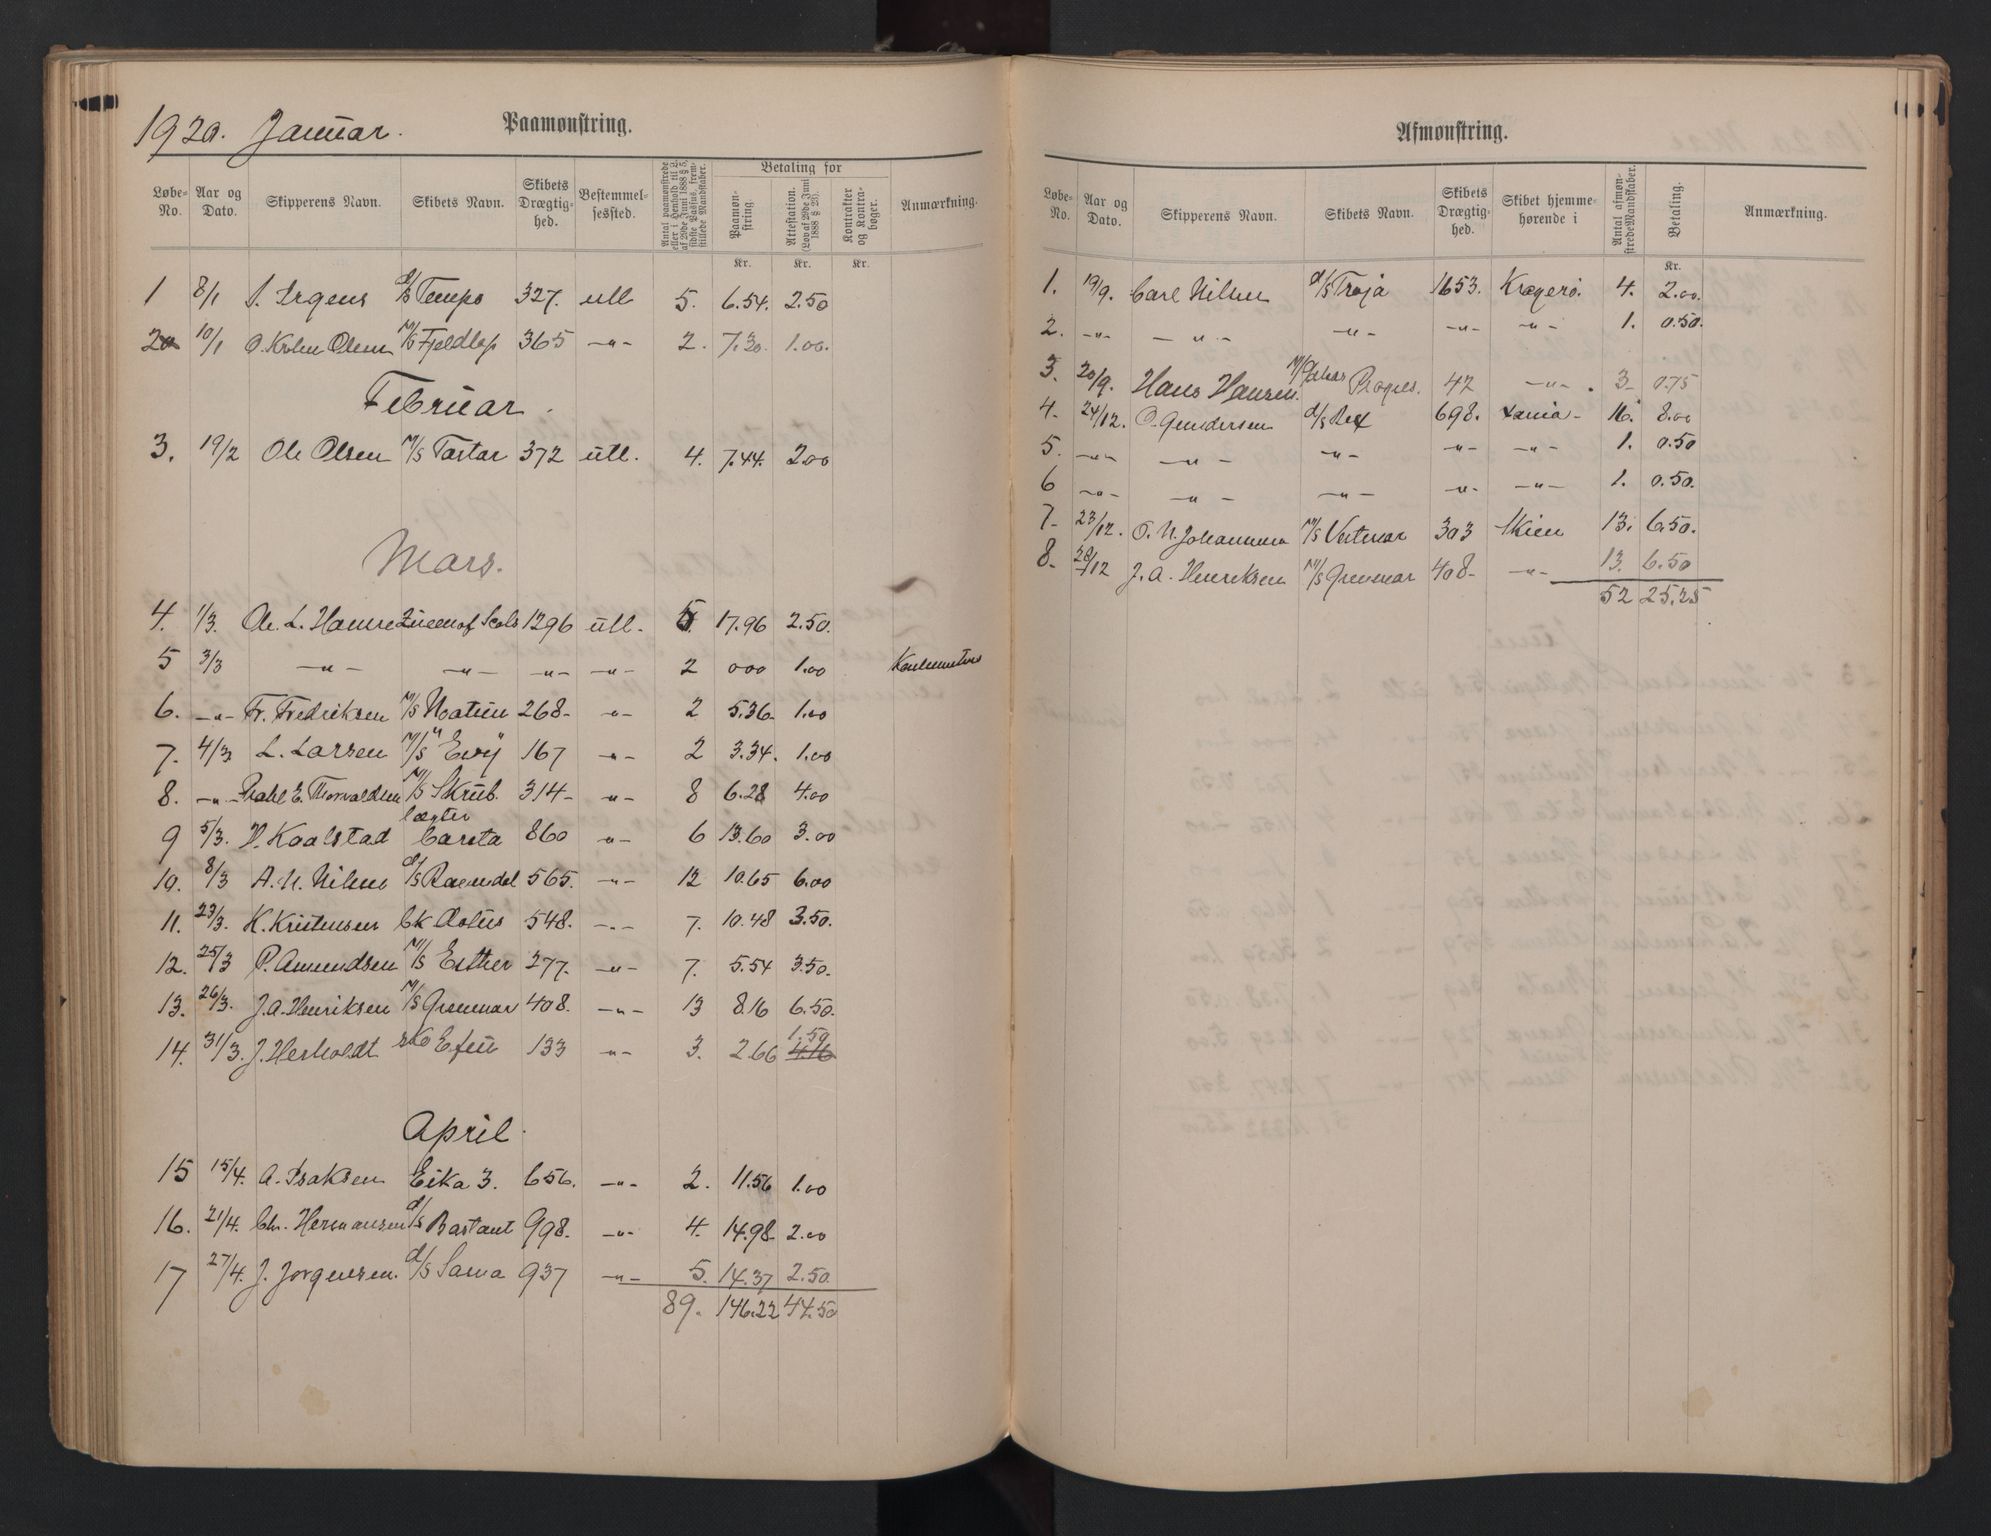 1920. Januar. Paamønstring.
Løbe-No. Aar og Dato. Skipperens Navn. Skibets Navn. Skibets Drægtig-hed. Bestemmel-sessted. Antal paamønstrede eller i Henhold til L. af 29de Juni 1888 § 5, sidste Passus, frem-stillede Mandskaber. Betaling for Paamøn-string. Attestation. (Lov af 29de Juni 1888 § 23). Kontrakter og Kontra-bøger. Anmærkning.
Kr. Kr. Kr.
1 8/1 S. Irgens d/s Tempo 327. utl 5. 6.54. 2.50
2 10/1 O. Olsen M/S Fjeldtop 365 -"- 2. 7.30. 1.00.
Februar.
3. 19/2 Ole Olsen M/S Tartar 372 utl. 4. 7.44. 2.00
Mars.
4. 1/3. Ole L. Hamre Queen of Scots 1296 utl. 5 17.96 2.50.
5 3/3 -"- -"- -"- -"- 2 000 1.00
6. -"- Fr. Fredriksen M/S Noatun 268- -"- 2 5.36. 1.00
7. 4/3 L. Larsen M/S "Evy 167 -"- 2 3.34. 1.00
8. -"- E. Thorvaldsen M/S Skrub. 314- -"- 8 6.28 4.00
9 5/3. H. Kaalstad lægter Carsta 860 -"- 6 13.60 3.00
10. 8/3 A. N. Nilsen d/s Raumdal 565. -"- 12 10.65 6.00
11. 23/3. K. Kristensen bk 548. -"- 7. 10.48 3.50.
12. 25/3 P. Amundsen M/S Esther 277. -"- 7. 5.54 3.50.
13. 26/3. J. A. Henriksen M/S Grenmar 408. -"- 13 8.16 6.50.
14. 31/3. J. Herholdt sk 133 -"- 3. 2.66 4.16 1.50
April.
15 15/4. A. Isaksen Eika 3. 656. -"- 2. 11.56 1.00
16. 21/4. Chr. Hermansen d/s Bastant 998. -"- 4. 14.98- 2.00
17 27/4. J. Jorgensen. d/s Sarna 937 -"- 5. 14.37 2.50.
89. 146.22 44.50
Afmønstring.
Løbe-No. Aar og Dato. Skipperens Navn. Skibets Navn. Skibets Drægtig-hed. Skibet hjemme-hørende i Antal afmøn-strede Mandskaber. Betaling. Anmærkning.
Kr.
1. 19/9. Carl Nilsen d/s Troja 1653. Kragerø. 4. 2.00.
2. -"- -"- -"- -"- -"- 1. 0.50.
3. 20/9. Hans Hansen. 42 -"-. 3- 0.75
4. 24/12. O. Gundersen d/s Rex 698. Xania- 16. 8.00
5. -"- -"- -"- -"- -"- 1. 0.50
6 -"- -"- -"- -"- -"- 1. 0.50.
7- 23/12. O. N. Johannsen M/S Vestmar 303 Skien 13. 6.50.
8. 28/12 J. A. Henriksen M/S Grenmar 408- -"- 13. 6.50
52 25.25